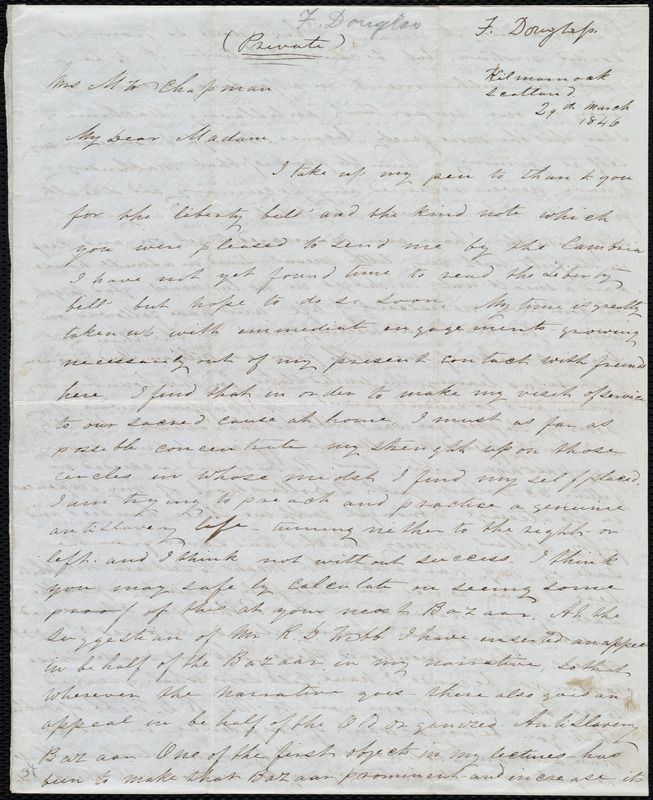 F. Douglas
(Private)
F. Douglass.
Kilmarnock
Scotland
29th March
1846
Mrs M W Chapman
My Dear Madam.
I take up my pen to thank you
for the 'liberty bell' and the kind note which
you were pleased to send me by the Cambria
I have not yet found time to read the Liberty
bell but hope to do so soon. My time is greatly
taken up with immediate engagements growing
necessarily out of my present contact with friends
here. I find that in order to make my visit of service
to our sacred cause at home I must as far as
possible concentrate my strength upon those
circles in whose midst I find my self placed.
I am trying to preach and practice a genuine
antislavery life - turning neither to the right or
left. and I think not without success. I think
you may safe ly calculate on seeing some
proof of this at your next Bazaar. At the
suggestion of Mr R. D Webb I have inserted an appeal
in be half of the Bazaar in my narrative, so that
wherever the narrative goes there also goes an
appeal in be half of the Old organized AntiSlavery
Bazaar. One of the first objects in my lectures has
been to make that Bazaar prominent and increase its